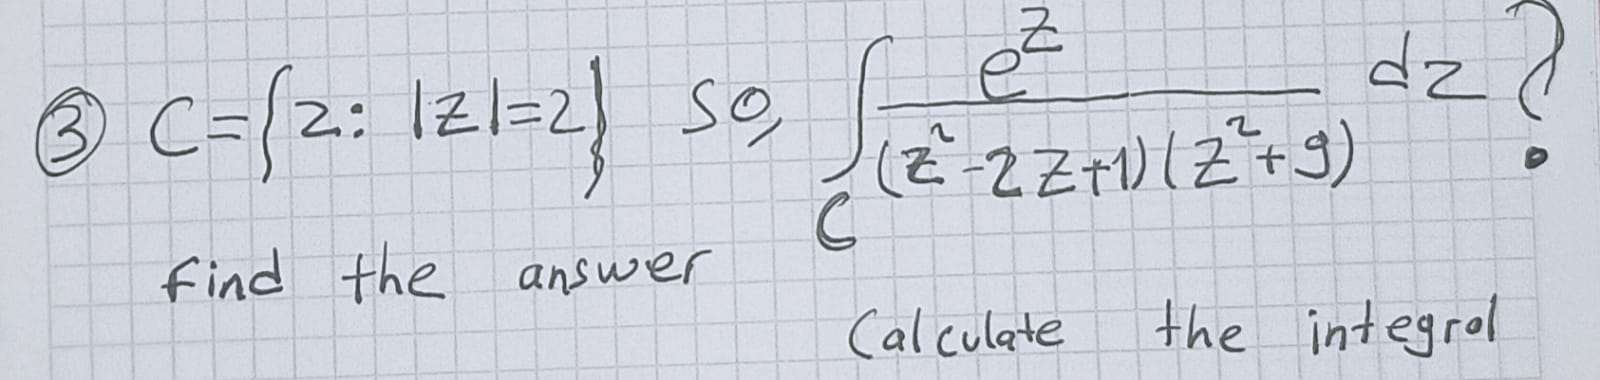 ③ C={z: |z|=2} so, ∫_C e^z/((z²-2z+1)(z²+9)) dz?
find the answer
Calculate the integral